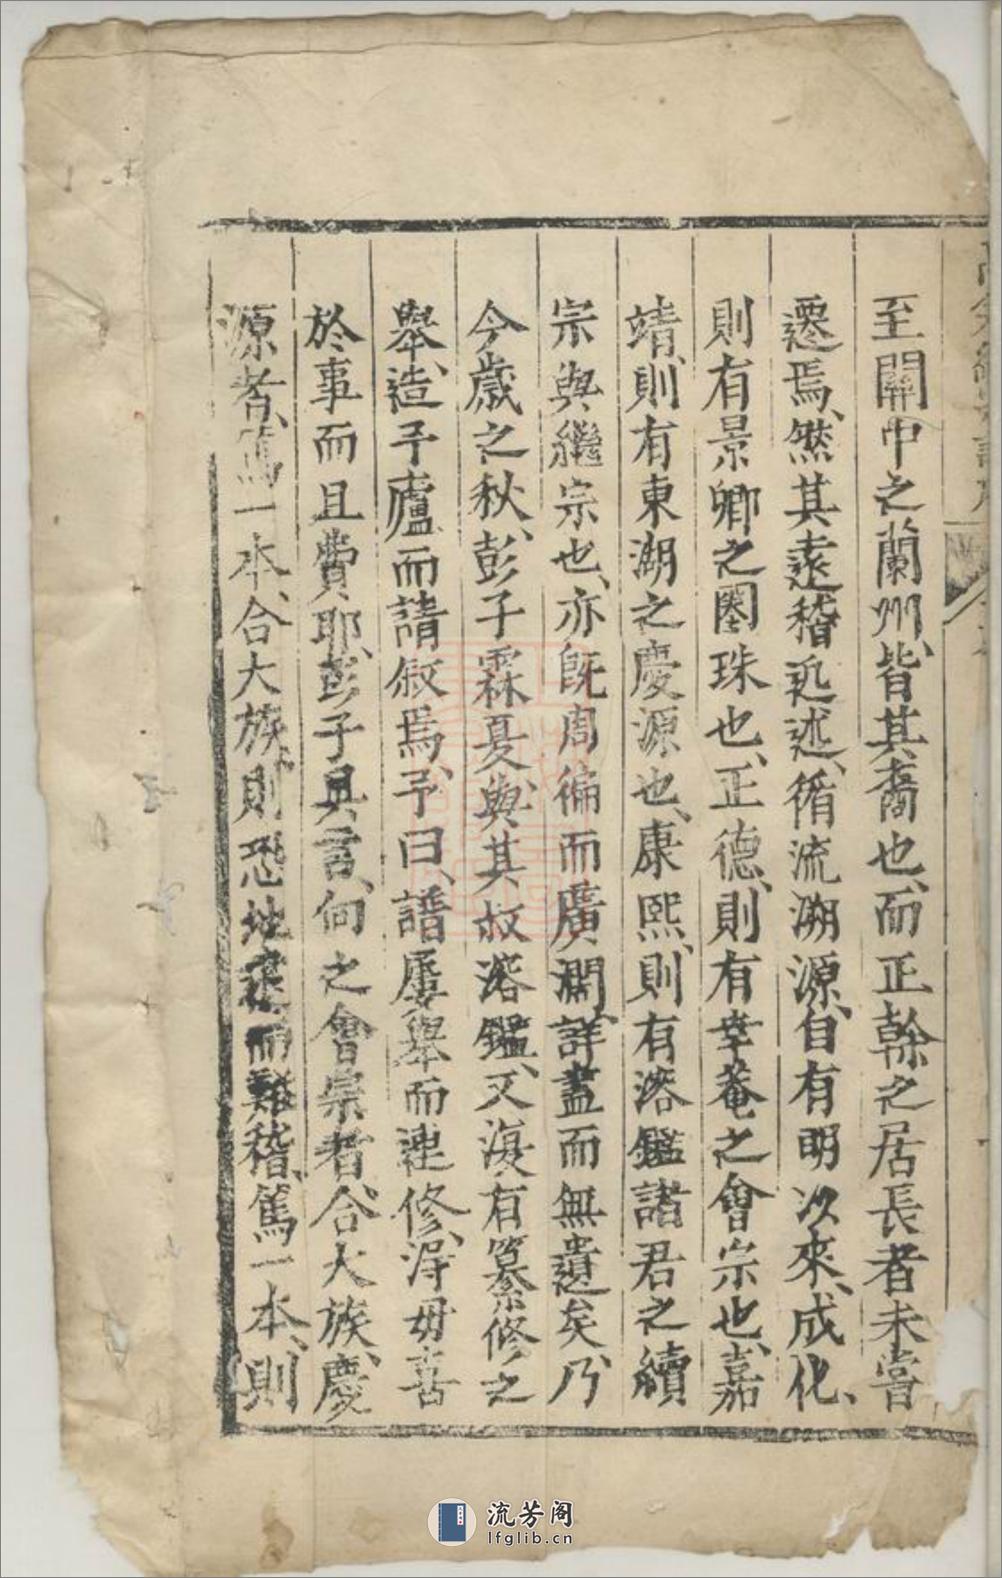 至關中之蘭州、皆其裔也、而正幹之居長者未嘗
遷焉、然其遠稽近述、循流溯源、自有明以來、成化、
則有景卿之圏珠也、正德、則有幸菴之會宗也、嘉
靖、則有東湖之慶源也、康熙、則有溶鑑諸君之續
宗與繼宗也、亦旣周徧而廣濶、詳盡而無遺矣、乃
今歲之秋、彭子霖夏、與其叔溶鑑、又復有纂修之
舉、造予廬而請叙焉、予曰、譜屢舉而連修、得毋喜
於事而且費耶、彭子具言、向之會宗者、合大族、慶
源者、篤一本、合大族、則恐地而難稽、篤一本、則
流芳阁
lfglib.cn